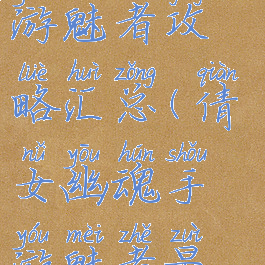 游魅者攻
lüè huì zǒng qiàn
略汇总(倩
nǚ yōu hún shǒu
女幽魂手
yóu mèi zhě zuì
游魅者最